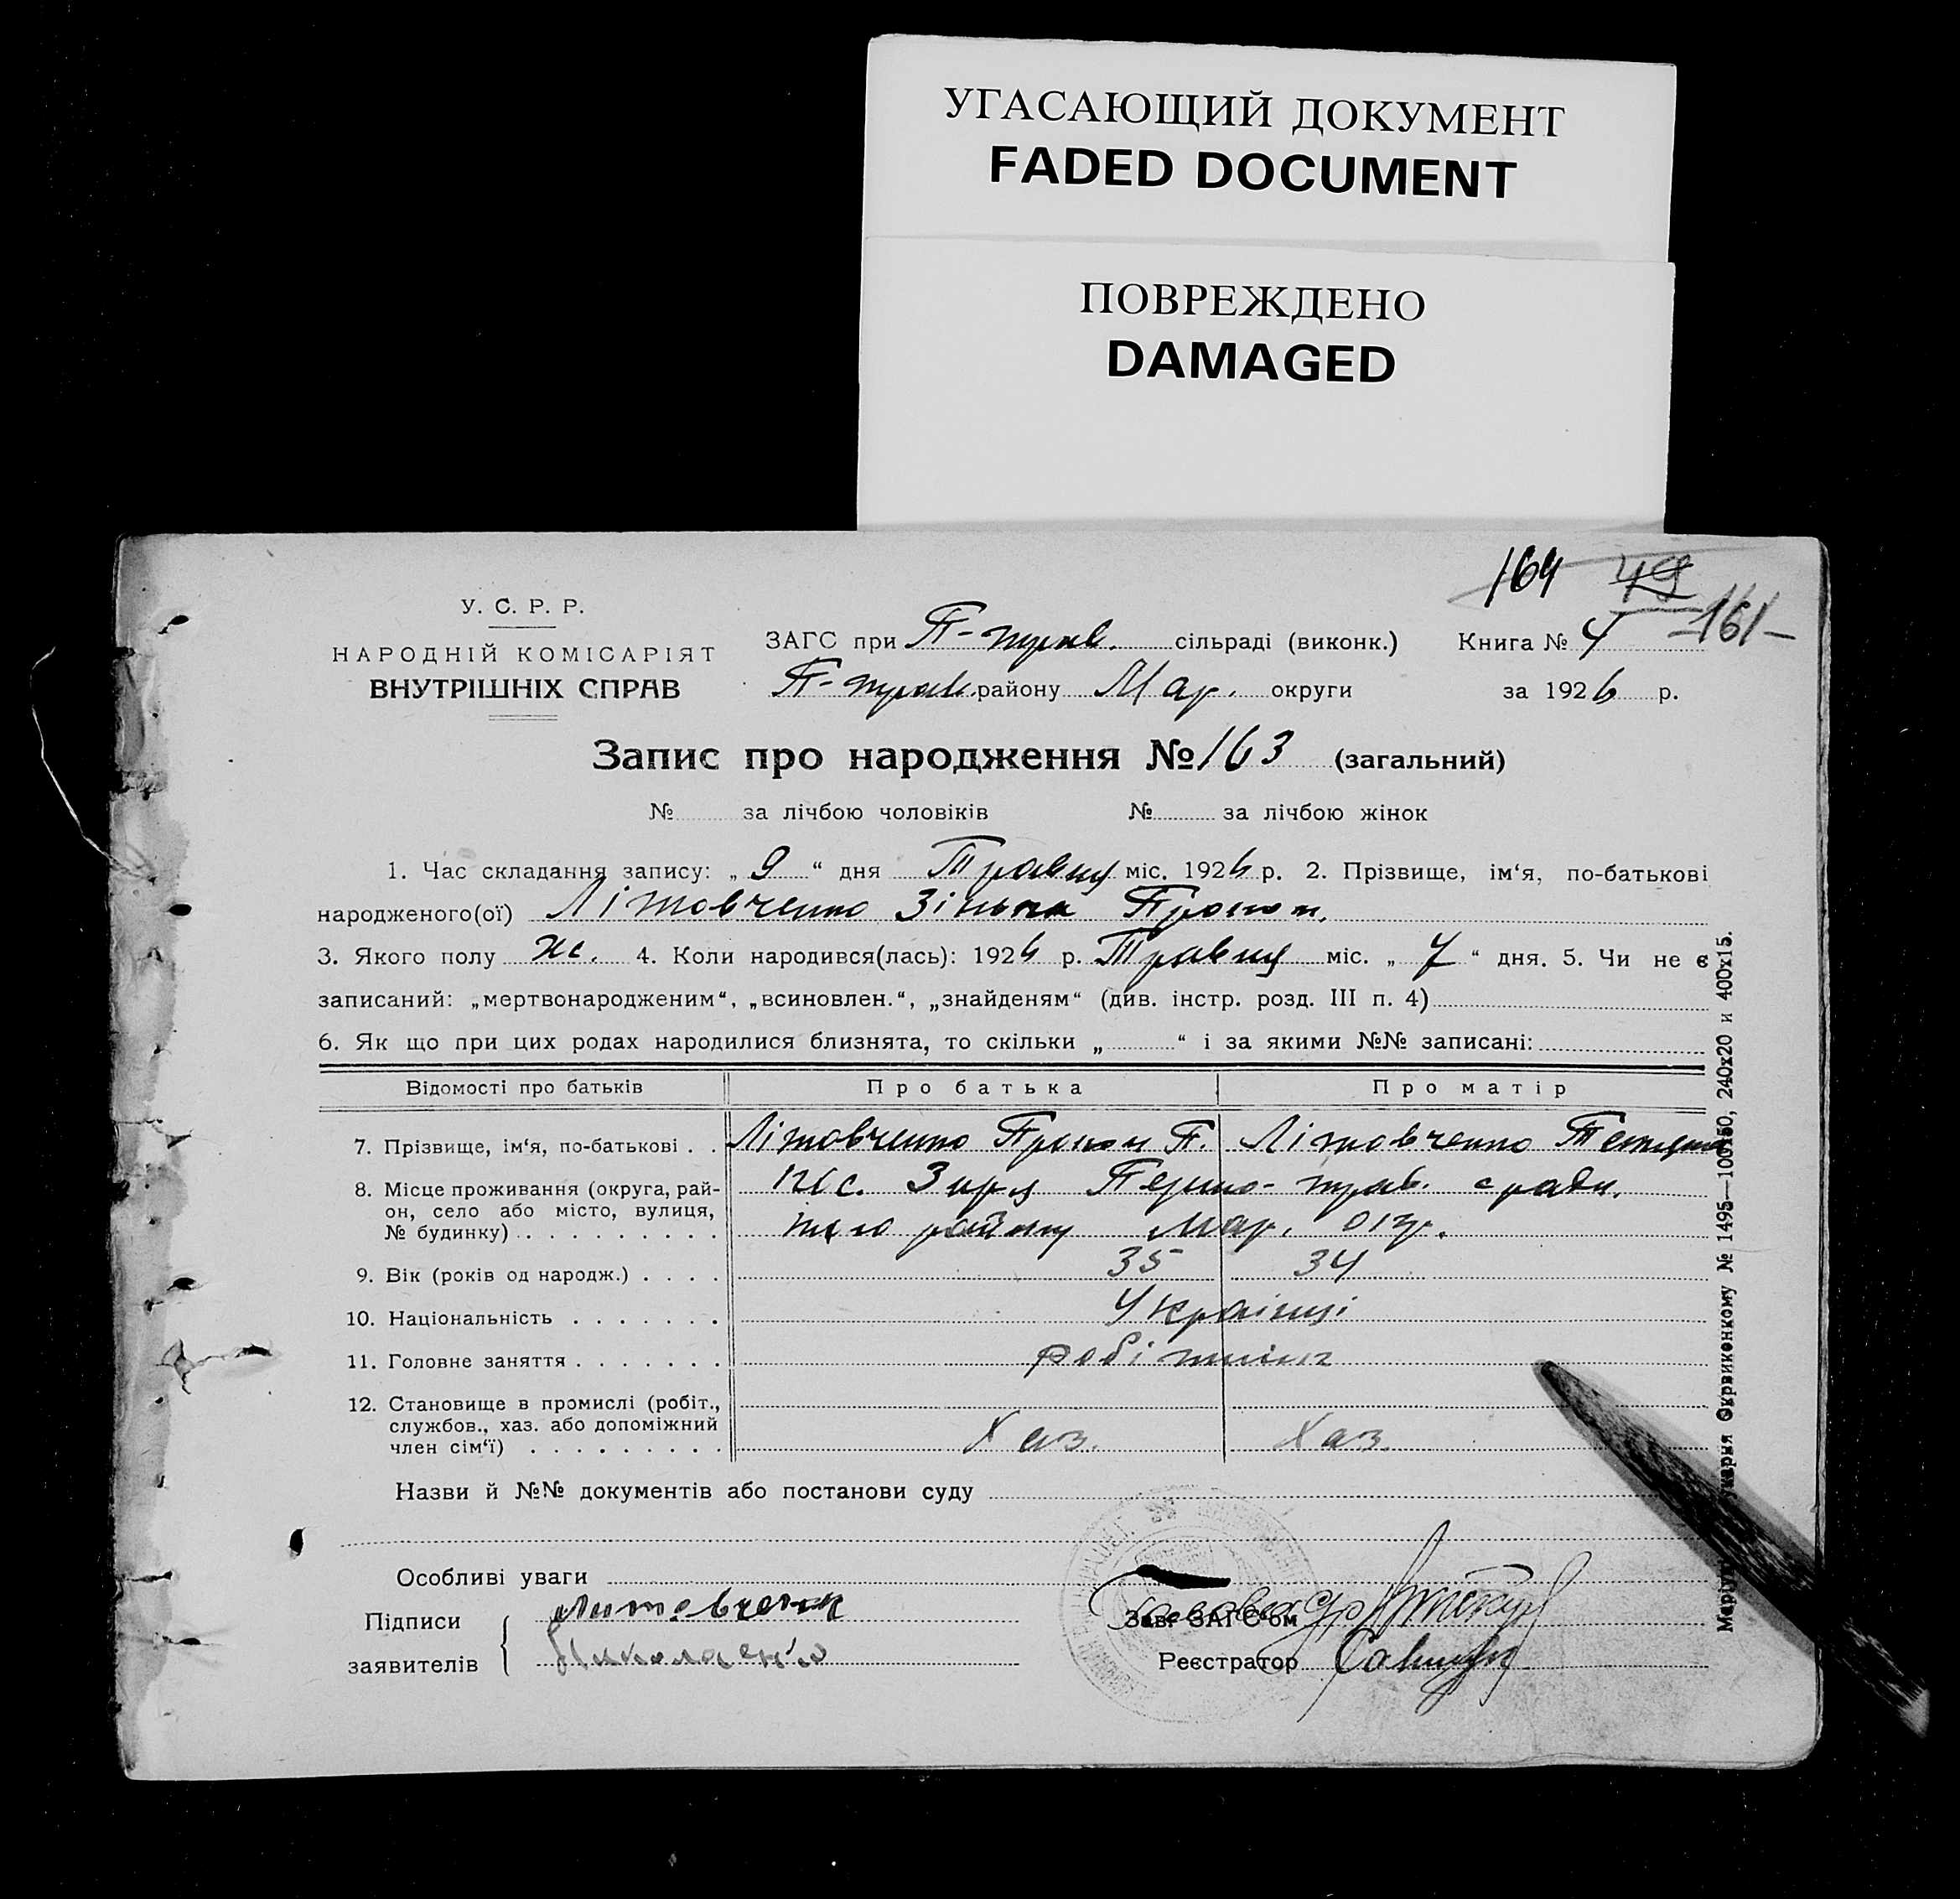 УГАСАЮЩИЙ ДОКУМЕНТ
FADED DOCUMENT
ПОВРЕЖДЕНО
DAMAGED
164 49
-161-
У. С. Р. Р.
НАРОДНІЙ КОМІСАРІЯТ
ВНУТРІШНІХ СПРАВ
ЗАГС при П-трав. сільраді (виконк.) Книга №
П-трав. району Мар. округи за 1926 р.
Запис про народження № 163 (загальний)
№ за лічбою чоловіків № за лічбою жінок
1. Час складання запису: „ 9 “ дня Травня міс. 1926 р. 2. Прізвище, ім‘я, по-батькові
народженого(ої) Літовченко Зінька Прокоп.
3. Якого полу ж. 4. Коли народився(лась): 1926 р. Травня міс. „ 7 “ дня. 5. Чи не є
записаний: „мертвонародженим“, „всиновлен.“, „знайденям“ (див. інстр. розд. III п. 4)
6. Як що при цих родах народилися близнята, то скільки „ “ і за якими №№ записані:
Відомості про батьків Про батька Про матір
7. Прізвище, ім‘я, по-батькові . . Літовченко Прокоп П. Літовченко Тетяна
8. Місце проживання (округа, рай-
он, село або місто, вулиця,
№ будинку) . . . . . . . . .
Зиря Першо-трав. с ради.
того району Мар. окр.
9. Вік (років од народж.) . . . . 35 34
10. Національність . . . . . . . Українці
11. Головне заняття . . . . . . .
12. Становище в промислі (робіт.,
службов., хаз. або допоміжний
член сім‘ї) . . . . . . . . . Хаз. Хаз.
Назви й №№ документів або постанови суду
Особливі уваги
Підписи Литовченк
заявителів Николаенко
Зав. ЗАГС‘ом
Голова
Реєстратор
№ 1495—100х50, 240х20 и 400х15.
Окрвиконкому